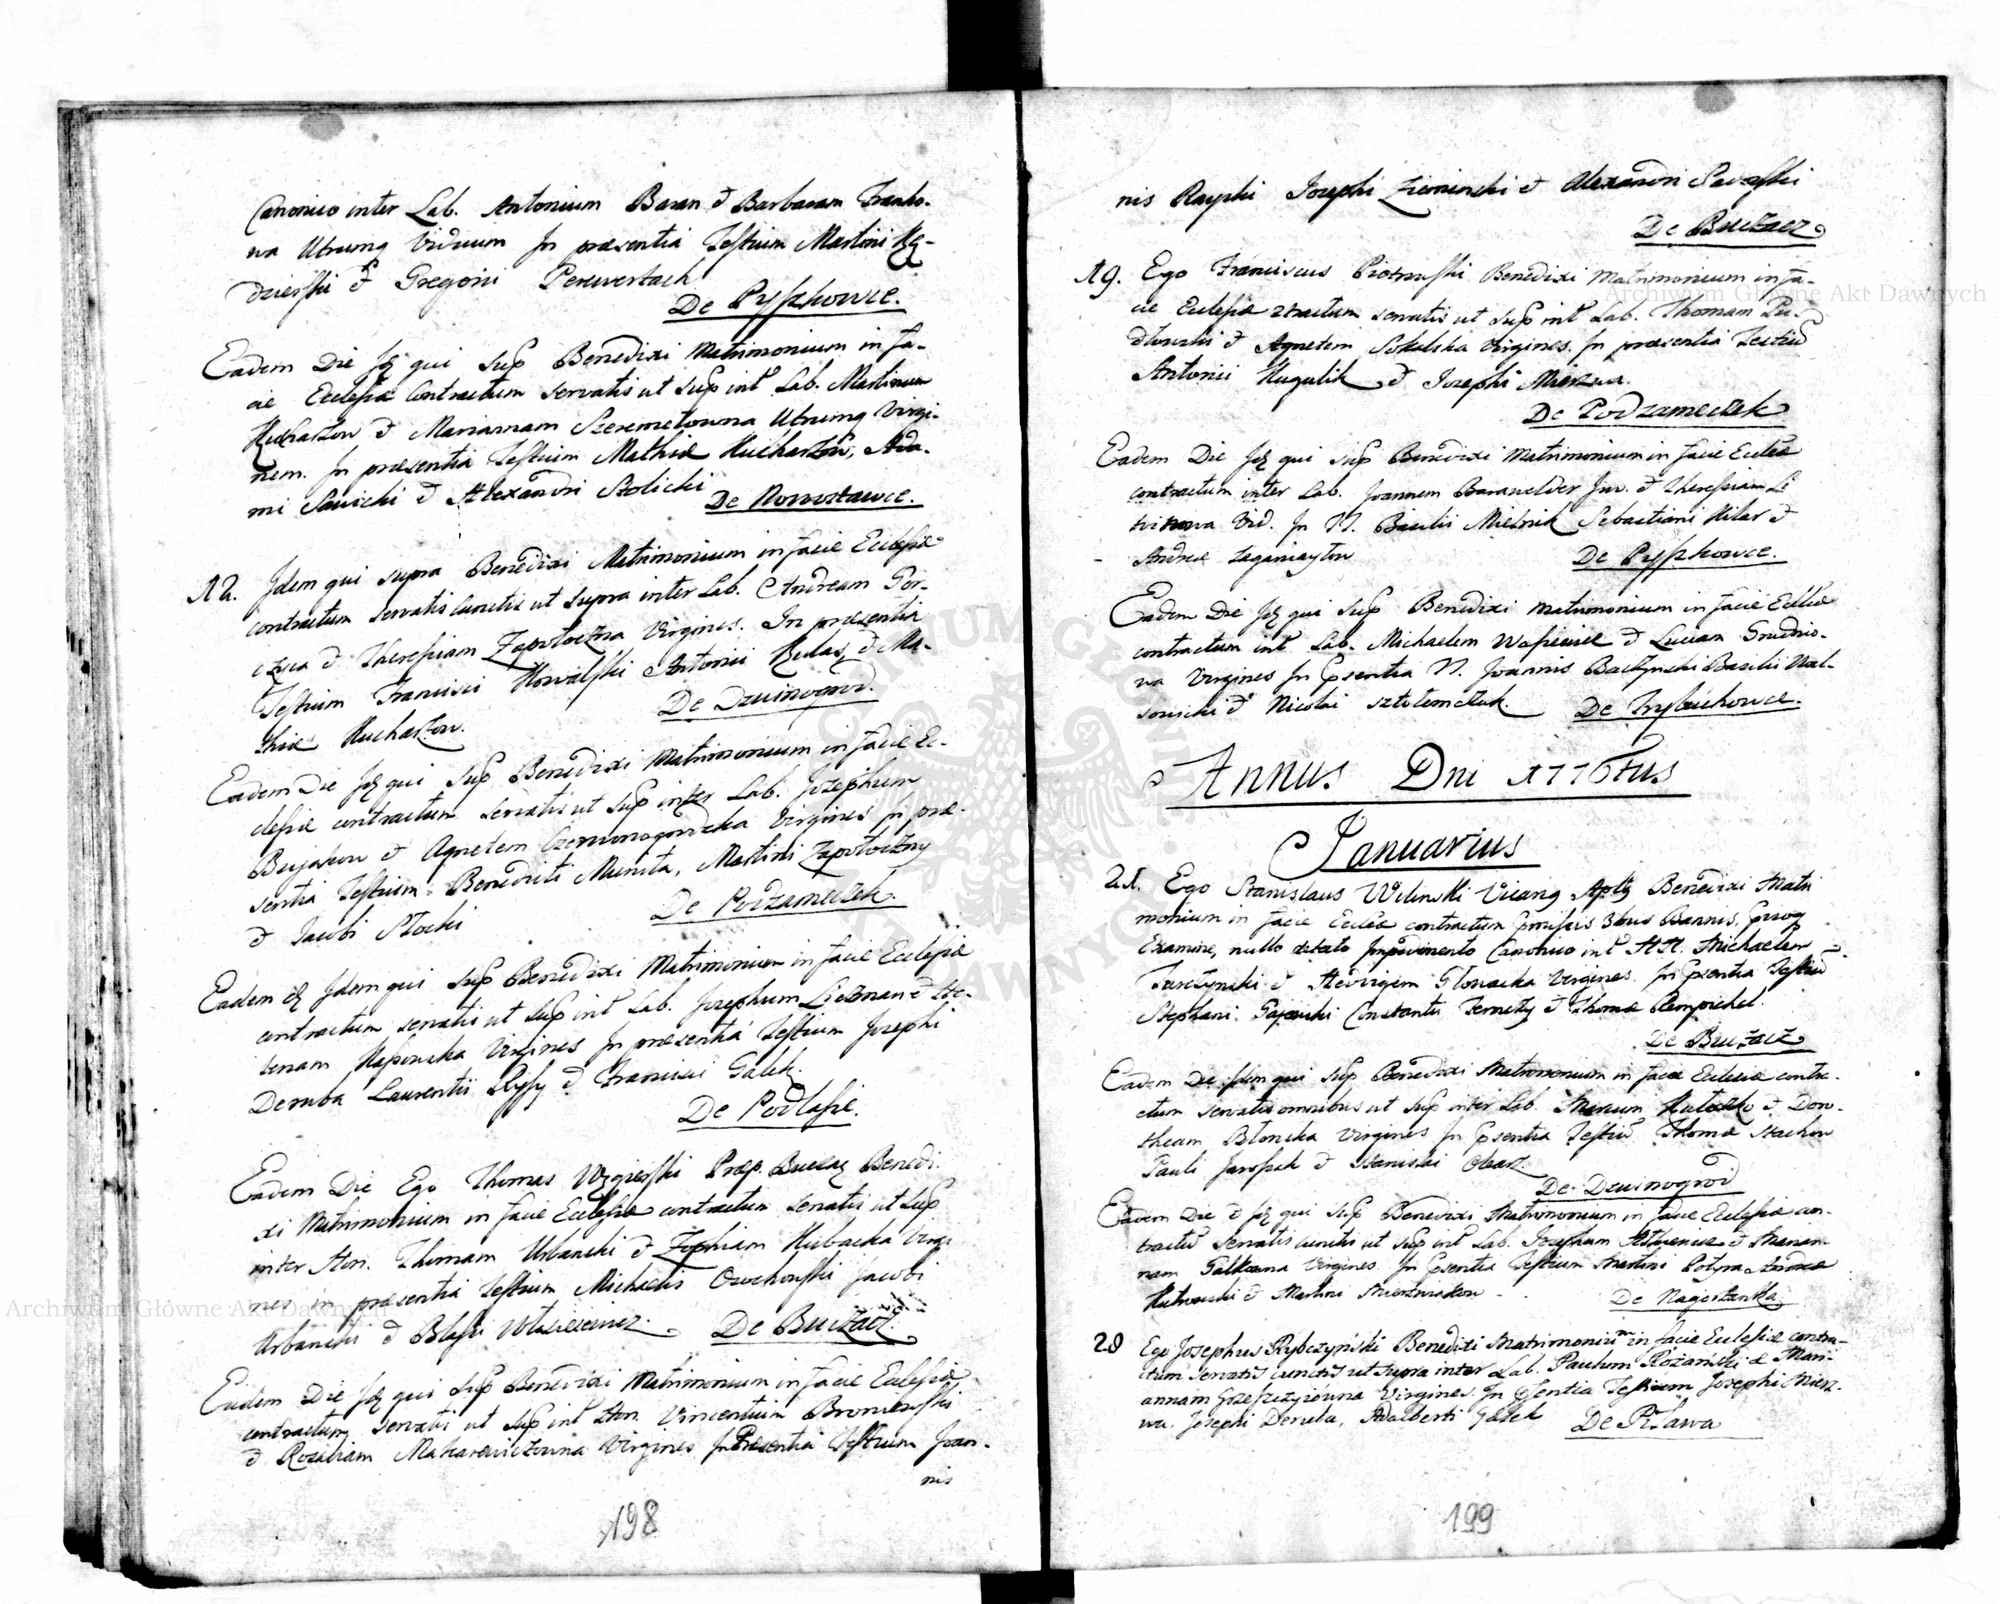 Canonico inter Lab. Antonium Baran et Barbaram Franko-
wa Utrumq Viduum In præsentia Testium Martini Kę-
dzierski et Gregorii Perewertach
De Pyszkowce.
Eadem Die Idem qui sup Benedixi Matrimonium in fa-
cie Ecclesiæ Contractum servatis ut sup int Lab. Martinum
Kucharzow et Mariannam Szeremetowna Utrumq Virgi-
nem. In præsentia Testium Mathiæ Kucharzow, Ada-
mi Sawicki et Alexandri Stolicki
De Nowostawce.
12. Idem qui supra Benedixi Matrimonium in facie Ecclesiæ
contractum servatis cunctis ut supra inter Lab. Andream Gor-
czyca et Theresiam Zapotoczna Virgines. In præsentia
Testium Francisci Kowalski Antonii Kulas et Ma-
thiæ Kucharzow.
De Dzwinogrod.
Eadem Die Idem qui sup Benedixi Matrimonium in facie Ec-
clesiæ contractum servatis ut sup inter Lab. Josephum
Bujakow et Agnetem Czerwonogrodzka Virgines in præ-
sentia Testium Benedicti Munita, Martini Zapotoczny
et Jacobi Stocki
De Podzameczek.
Eadem et Idem qui sup Benedixi Matrimonium in facie Ecclesiæ
contractum servatis ut sup int Lab. Josephum Liczman et He-
lenam Kaponska Virgines In præsentia Testium Josephi
Deruba Laurentii Ryssy et Francisci Galek.
De Podlasie.
Eadem Die Ego Thomas Węgierski Præp. Buczaz Benedi-
xi Matrimonium in facie Ecclesiæ contractum servatis ut sup
inter Hon. Thomam Urbanski et Zophiam Kubacka Virgi-
nes in præsentia Testium Michaelis Orzchowski Jacobi
Urbanski et Blasii
De Buczacz.
Eadem Die Idem qui sup Benedixi Matrimonium in facie Ecclesiæ
contractum servatis ut sup int Hon. Vincentium Bronewski
et Rozaliam Makarewiczowna Virgines In Præsentia Testium Joan-
nis
198
nis Rayski Josephi Ziemienski et Alexandri Sadowski
De Buczacz
19. Ego Franciscus Piotrowski Benedixi Matrimonium in fa-
cie Ecclesiæ ctractum servatis ut sup int Lab. Thomam Pu-
dlowski et Agnetem Sokalska Virgines. In præsentia Testiu
Antonii Hugulik et Josephi Mierzwa.
De Podzameczek
Eadem Die Idem qui sup Benedixi Matrimonium in facie Ecclæ
contractum inter Lab. Joannem Juv. et Theresiam Li-
twinowa Vid. In TT. Basilii Mielnik Sebastiani Kilar et
Andreæ
De Pyszkowce.
Eadem Die Idem qui sup Benedixi Matrimonium in facie Ecclæ
contractum int Lab. Michaelem Wasiewicz et Luciam Grudnio-
wa Virgines In Psentia TT. Joannis Baczynski Basilii Wal-
et Nicolai
De Trybuchowce.
Annus Dni 1776tus
Januarius
21. Ego Stanislaus Wilenski Vicarius Aplis Benedixi Matri
monium in facie Ecclæ contractum Pmissis 3bus Bannis, Pmoq
Examine, nullo detecto Impedimento Canonico int HH. Michaelem
Turczynski et Hedvigem Glowacka Virgines. In Psentia Testiu
Stephani Gajewski Constantii et Thomæ
De Buczacz
Eadem Die Idem qui sup Benedixi Matrimonium in facie Ecclesiæ contra-
ctum servatis omnibus ut sup inter Lab. et Doro-
theam Blonska Virgines In Psentia Testiu Thomæ Stachow
Pauli Jarossak et Stanislai
De Dzwinogrod
Eadem Die et Idem qui sup Benedixi Matrimonium in facie Ecclesiæ con-
tractu Servatis cunctis ut sup int Lab. Josephum et Marian-
nam Virgines. In Psentia Testium Martini Andreæ
et Martini
De Nagorzanka.
28 Ego Josephus Rybczyński Benedixi Matrimonium in facie Ecclesiæ contra-
ctum Servatis cunctis ut supra inter Lab. Paulum Różański et Mari-
annam Virgines. In Psentia Testium Josephi Mierz-
wa. Josephi Deruba, Adalberti Galek
De Pilawa
199
Archiwum Główne Akt Dawnych
Archiwum Główne Akt Dawnych